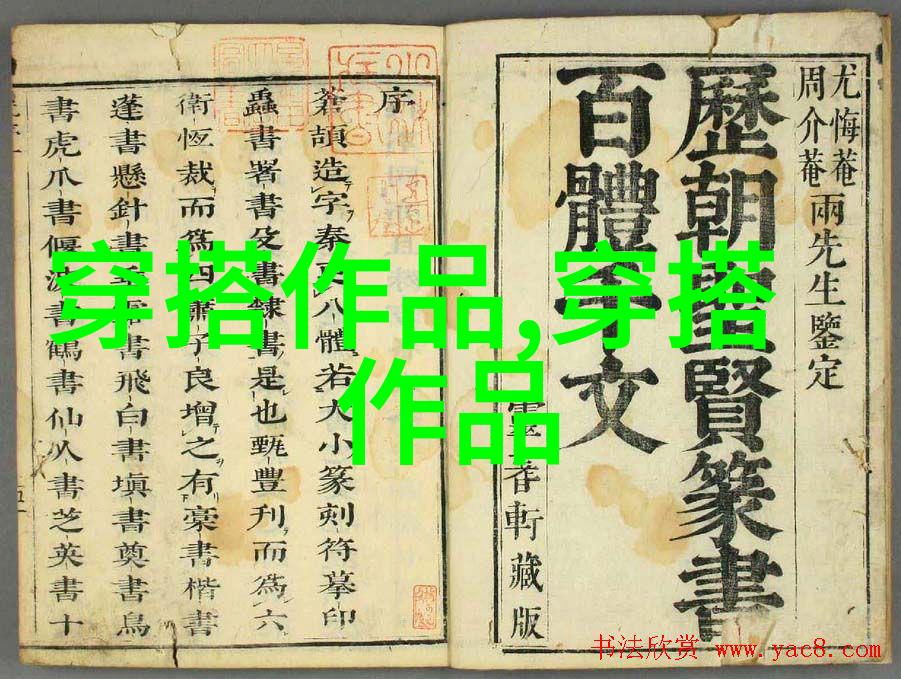 尤悔菴
周介菴
兩先生鑒定
歷朝聖賢篆書
百體千文
霊春軒藏版
序
蒼頡造字秦更八體若大小篆刻符摹印
蟲書署書殳書隸書是也甄豊刋而為六
衛恆裁而為四蕭子良增之有藁書楷書
蓬書懸針書垂露書飛白書塡書奠書鳥
書虎爪書偃波書鶴書仙人書芝英書十
穿搭作品,穿搭
作品
书法欣赏 www.yac8.com